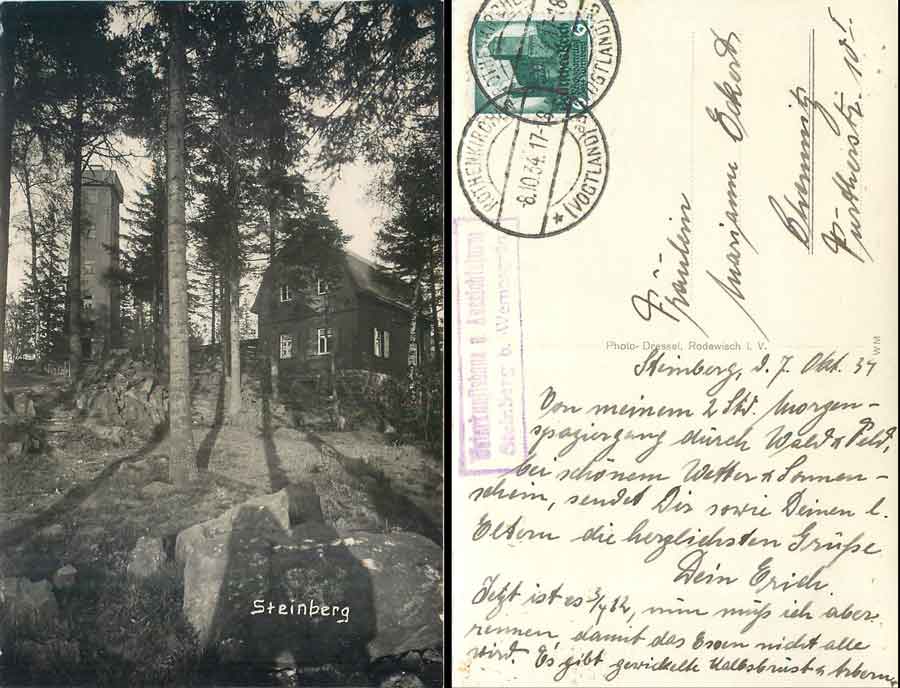 Steinberg
ROTHENKIRCHEN
(VOGTLAND)
8.10.34.17-
Unterkunftshaus u. Aussichtsturm
Steinberg b. Wernesgrün
Fräulein
Marianne Eckert
Chemnitz
Photo-Dressel, Rodewisch i. V.
WM
Steinberg, d. 7. Okt. 34
Von meinem 2 Std. Morgen-
spaziergang durch Wald u. Feld,
bei schönem Wetter u. Sonnen-
schein, sendet Dir sowie Deinen l.
Eltern die herzlichsten Grüße
Dein Erich.
Jetzt ist es 3/4 12, nun muß ich aber
rennen, damit das Essen nicht alle
wird. Es gibt gewickelte Kalbsbrust u.